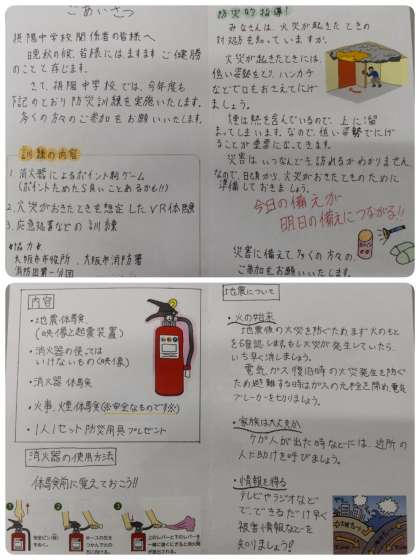 ごあいさつ
摂陽中学校関係者の皆様へ
晩秋の候、皆様にはますますご健勝
のことと存じます。
さて、摂陽中学校では、今年度も
下記のとおり防災訓練を実施いたします。
多くの方々のご参加をお願いいたします。
訓練の内容
1. 消火器によるポイント制ゲーム
(ポイントためたら良いことあるかも!!)
2. 火災がおきたときを想定したVR体験
3. 応急処置などの訓練
協力
大阪市市役所、大阪市消防署
防災的指導!
みなさんは、火災が起きたときの
対処を知っていますか。
火災が起きたときには、
低い姿勢をとり、ハンカチ
などで口をおさえてにげ
ましょう。
煙は熱を含んでいるので、上に溜
まってしまいます。なので、低い姿勢でにげ
ることが重要になってきます。
災害はいつなんどきも訪れるかわかりません。
なので、日頃から、火災がおきたときのために
準備しておきましょう。
今日の備えが
明日の備えにつながる!!
災害に備えて多くの方々の
ご参加をお願いいたします。
内容
・地震体験
(映像と起震装置)
・消火器の使っては
いけないもの(映像)
・消火器体験
・火事、煙体験(※安全なものです※)
・1人1セット防災用具プレゼント
消火器の使用方法
体験前に覚えておこう!!
1
2
3
安全ピンを
ホースの先を
つかんで火の
方に向ける。
上のレバーと下のレバーを
地震について
・火の始末
地震後の火災を防ぐためまず火のもと
を確認しましょう。もし火災が発生していたら、
いち早く消しましょう。
電気、ガス復旧時の火災発生を防ぐ
ため避難する時はガスの元栓を閉め電気
ブレーカーを切りましょう。
・家族は大丈夫か
ケガ人が出た時などには、近所の
人に助けを呼びましょう。
・情報を得る
テレビやラジオなど
で、できるだけ早く
被害情報などを
知りましょう!